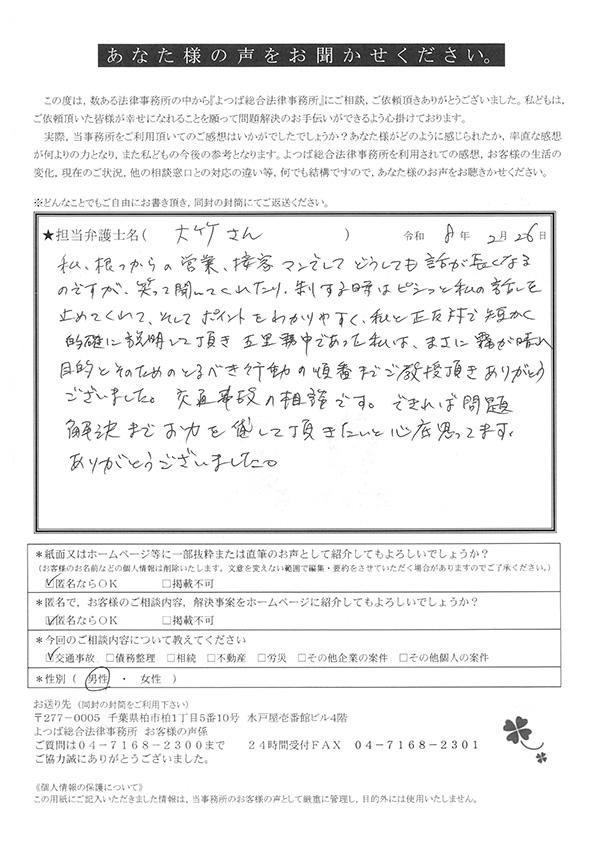 あなた様の声をお聞かせください。
この度は，数ある法律事務所の中から『よつば総合法律事務所』にご相談，ご依頼頂きありがとうございました。私どもは，
ご依頼頂いた皆様が幸せになれることを願って問題解決のお手伝いができるよう心掛けております。
実際，当事務所をご利用頂いてのご感想はいかがでしたでしょうか？あなた様がどのように感じられたか，率直な感想
が何よりの力となり，また私どもの今後の参考となります。よつば総合法律事務所を利用されての感想，お客様の生活の
変化，現在のご状況，他の相談窓口との対応の違い等，何でも結構ですので，あなた様のお声をお聴きかせください。
※どんなことでもご自由にお書き頂き，同封の封筒にてご返送ください。
★担当弁護士名（ 大竹さん ） 令和 8 年 2 月 26 日
私、根っからの営業、接客マンでして どうしても話が長くなる
のですが、笑って聞いてくれたり、制する時はピシっと私の話しを
止めてくれて、そしてポイントをわかりやすく、私と正反対で短かく
的確に説明して頂き 五里霧中であった私は、まさに霧が晴れ
目的とそのためのとるべき行動の順番までご教授頂きありがとう
ございました。 交通事故の相談です。できれば問題
解決までお力を貸して頂きたいと心底思ってます。
ありがとうございました。
＊紙面又はホームページ等に一部抜粋または直筆のお声として紹介してもよろしいでしょうか？
（お客様のお名前などの個人情報は削除いたします。文意を変えない範囲で編集・要約をさせていただく場合がありますのでご了承ください。）
☑匿名ならＯＫ □掲載不可
＊匿名で，お客様のご相談内容，解決事案をホームページに紹介してもよろしいでしょうか？
☑匿名ならＯＫ □掲載不可
＊今回のご相談内容について教えてください
☑交通事故 □債務整理 □相続 □不動産 □労災 □その他企業の案件 □その他個人の案件
＊性別（ 男性 ・ 女性 ）
お送り先（同封の封筒をご利用下さい）
〒277-0005 千葉県柏市柏1丁目5番10号 水戸屋壱番館ビル4階
よつば総合法律事務所 お客様の声係
ご質問は０４-７１６８-２３００まで ２４時間受付ＦＡＸ ０４-７１６８-２３０１
ご協力誠にありがとうございました。
《個人情報の保護について》
この用紙にご記入いただきました情報は，当事務所のお客様の声として厳重に管理し，目的外には使用いたしません。